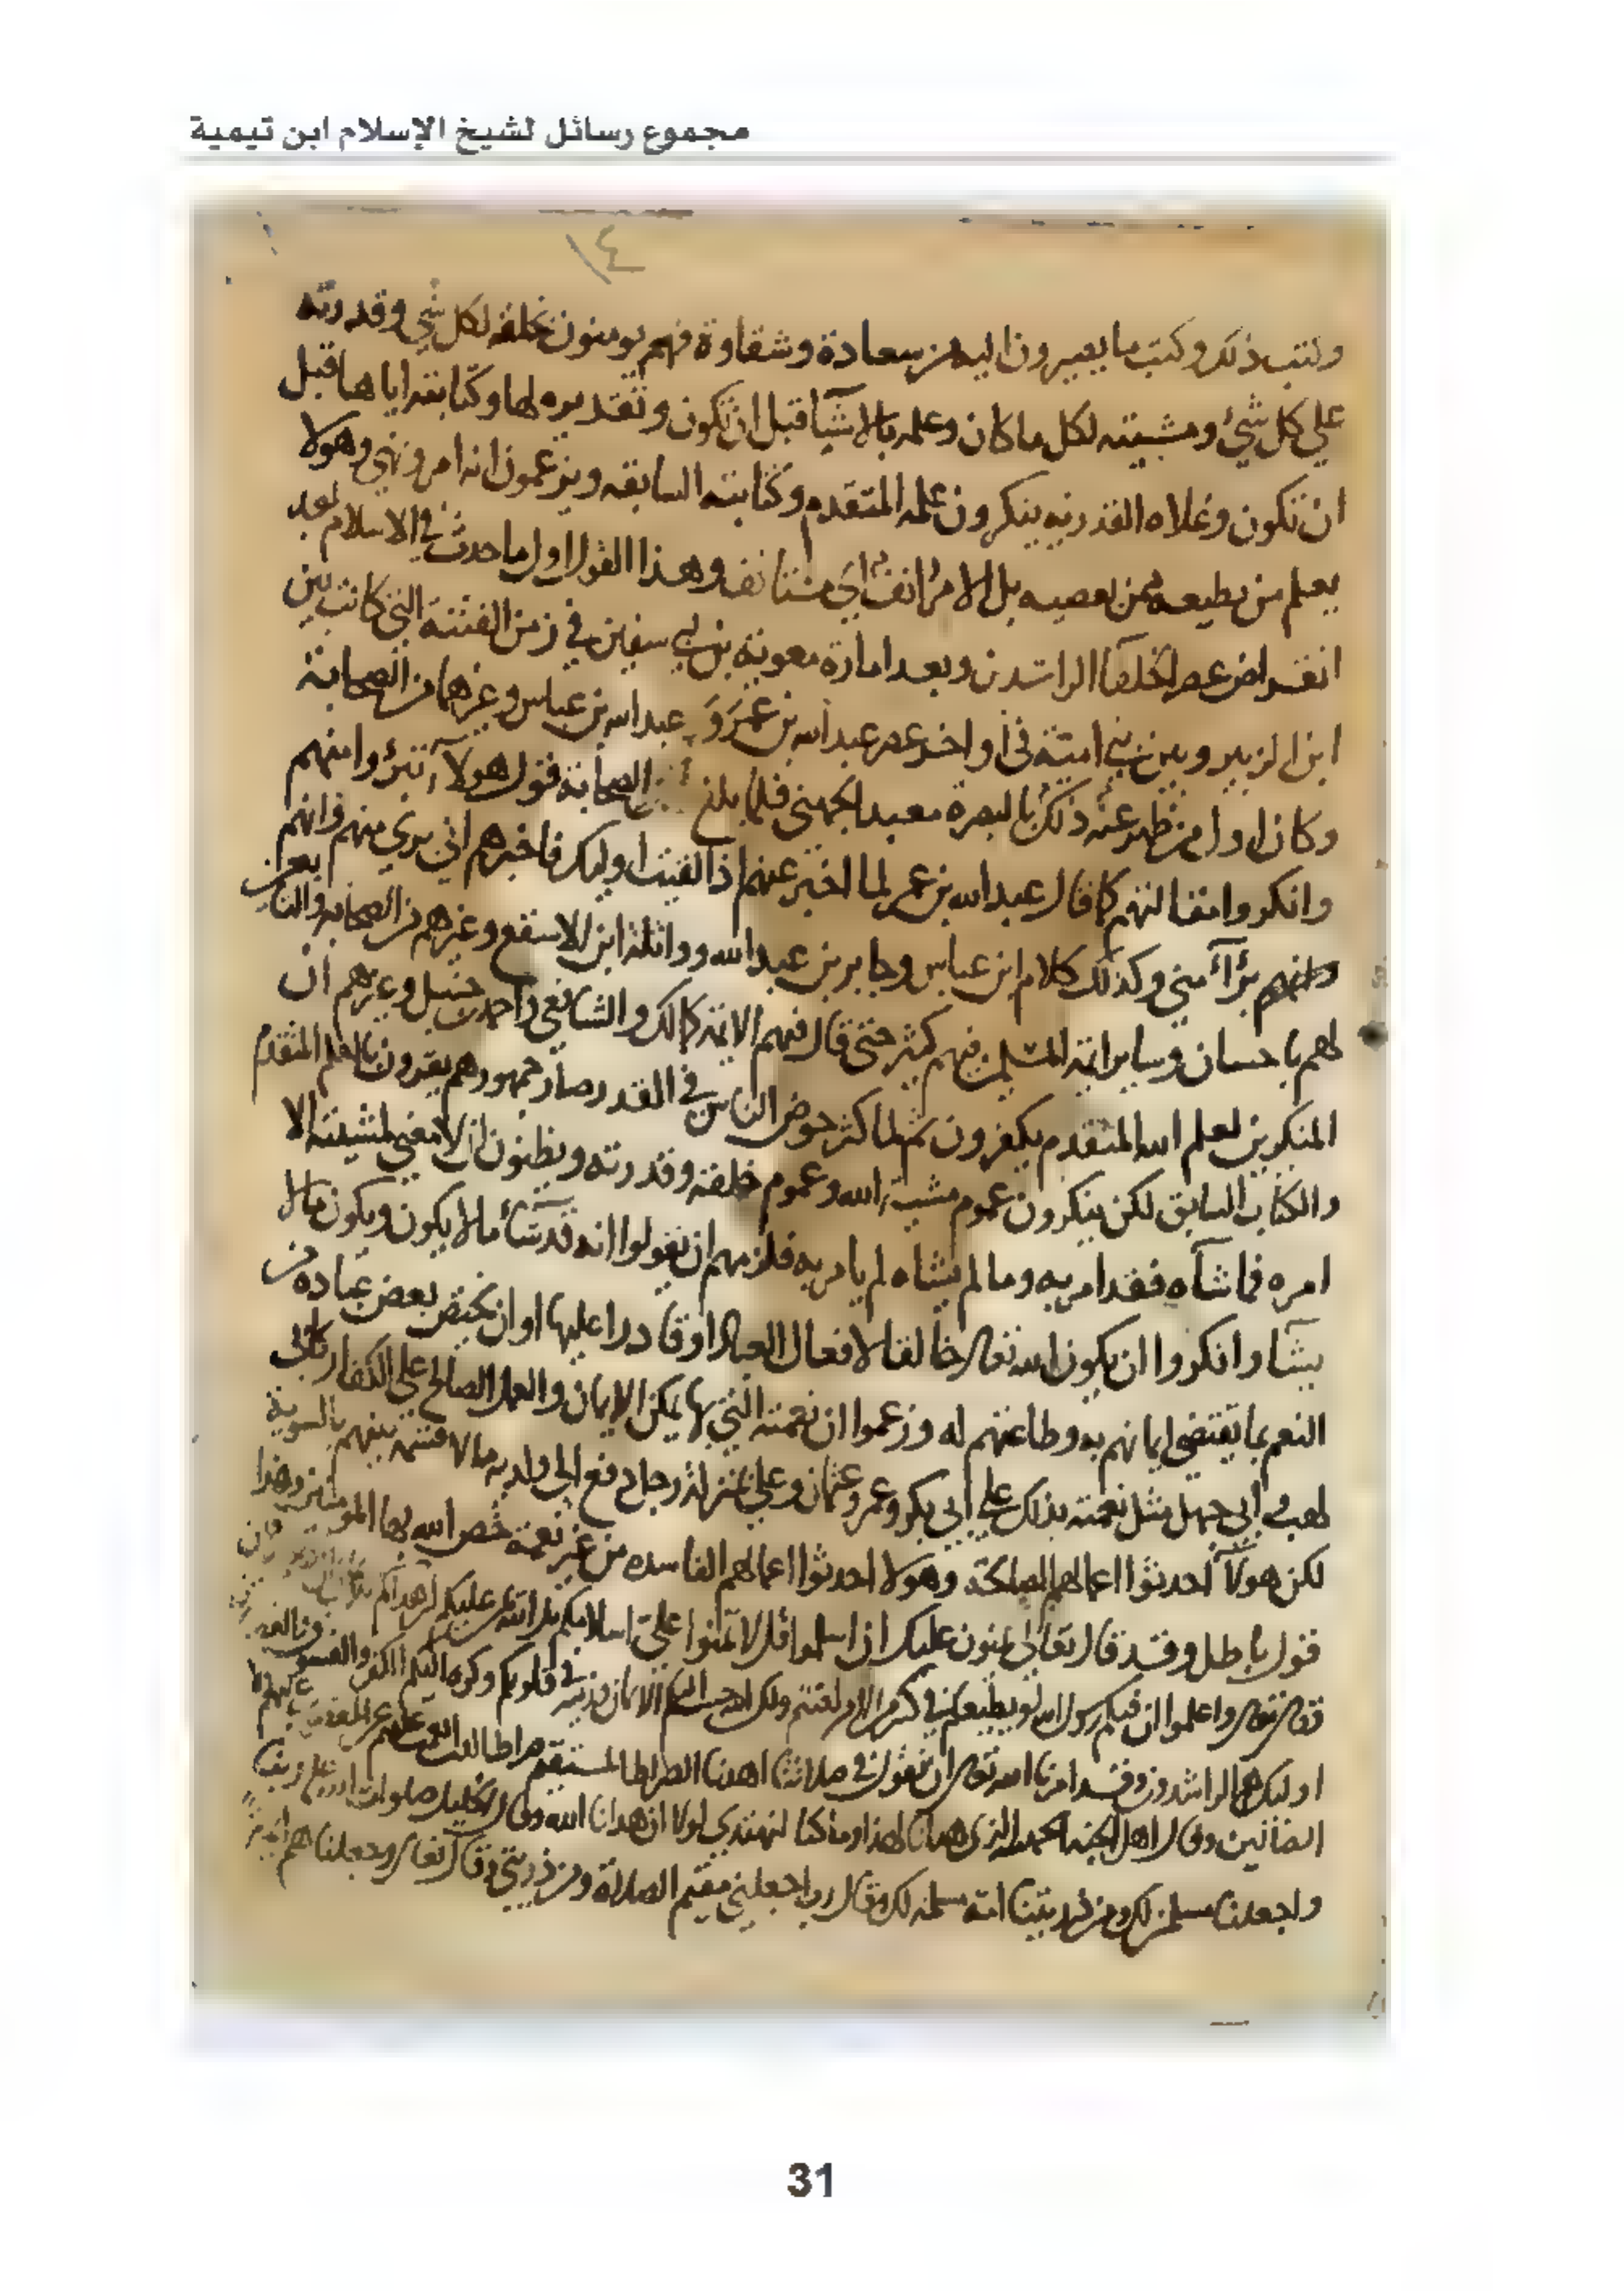 مجموع رسائل لشيخ الإسلام ابن تيمية
١٤
وكتب ذلك وكتب ما يصيرون اليه من سعادة وشقاوة فهم يومنون بخلقه لكل شي وقدرته
علي كل شيء ومشيته لكل ما كان وعلمه بالاشيآ قبل ان تكون وتقديره لها وكتابته اياها قبل
ان تكون وغلاه القدريه ينكرون علمه المتقدم وكتابته السابقه ويزعمون انه امر ونهي وهولا
يعلم من يطيعه ممن يعصيه بل الامر انف اي مستانف وهذا القول اول ما حدث في الاسلام بعد
انقراض عصر الخلفآ الراشدين وبعد امارة معوية بن ابي سفين في زمن الفتنة التي كانت بين
ابن الزبير وبين بني امية في اواخر عصر عبد الله بن عمر و عبد الله بن عباس وغيرهما من الصحابة
وكان اول من ظهر عنه ذلك بالبصرة معبد الجهني فلما بلغ الصحابة قول هولآ تبرؤا منهم
وانكروا مقالتهم كما قال عبد الله بن عمر لما اخبر عنهم اذا لقيت اوليك فاخبرهم اني بري منهم وانهم
برآء مني وكذلك كلام ابن عباس وجابر بن عبد الله وواثلة ابن الاسقع وغيرهم من الصحابه والتابعين
لهم باحسان وساير ايمة المسلمين فيهم كثير حتى قال فيهم الايمة كمالك والشافعي واحمد بن حنبل وغيرهم ان
المنكرين لعلم الله المتقدم يكفرون ثم لما كثر خوض الناس في القدر صار جمهورهم يقرون بالعلم المتقدم
والكتاب السابق لكن ينكرون عموم مشية الله وعموم خلقه وقدرته ويظنون ان لا معنى لمشيته الا
امره فما شآه فقد امر به وما لم يشاه لم يامر به فلزمهم ان يقولوا انه قد يشآء ما لا يكون ويكون ما لا
يشآ وانكروا ان يكون الله تعالى خالقا لافعال العباد او قادرا عليها او ان يختص بعض عباده من
النعم بما يقتضي ايمانهم به وطاعتهم له وزعموا ان نعمته التي بها يمكن الايمان والعمل الصالح على الكفار كابي
لهب وابي جهل مثل نعمته بذلك علي ابي بكر وعمر وعثمان وعلي بمنزلة رجل دفع الى ولديه مالا قسمه بينهم بالسوية
لكن هولآ احدثوا اعمالهم الصالحة وهولا احدثوا اعمالهم الفاسده من غير نعمة خص الله بها المومنين وهذا
قول باطل وقد قال تعالى يمنون عليك ان اسلموا قل لا تمنوا علي اسلامكم بل الله يمن عليكم ان هداكم
تعالى واعلموا ان فيكم رسول الله لو يطيعكم في كثير من الامر لعنتم ولكن الله حبب اليكم الايمان وزينه في قلوبكم وكره اليكم الكفر والفسوق
اوليك هم الراشدون وقد امرنا الله تعالى ان نقول في صلاتنا اهدنا الصراط المستقيم صراط الذين انعمت عليهم غير المغضوب عليهم ولا
الضالين وقال اهل الجنه الحمد لله الذي هدانا لهذا وما كنا لنهتدي لولا ان هدانا الله وقال الخليل صلوات الله عليه
واجعلنا مسلمين لك ومن ذريتنا امة مسلمه لك وقال رب اجعلني مقيم الصلاة ومن ذريتي وقال تعالى وجعلناهم
31